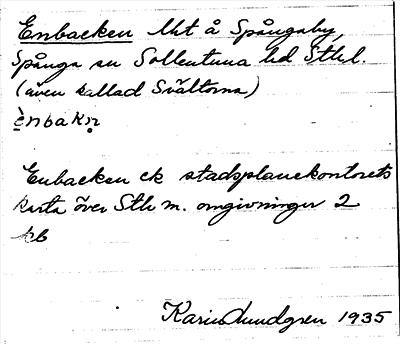 Enbacken lht å Spångaby,
Spånga sn Sollentuna hd Sthl.
(även kallad Svältorna)
ènbakn̥
Enbacken ek stadsplanekontorets
karta över Sthlm m. omgivningar 2
kb
Karin Lundgren 1935